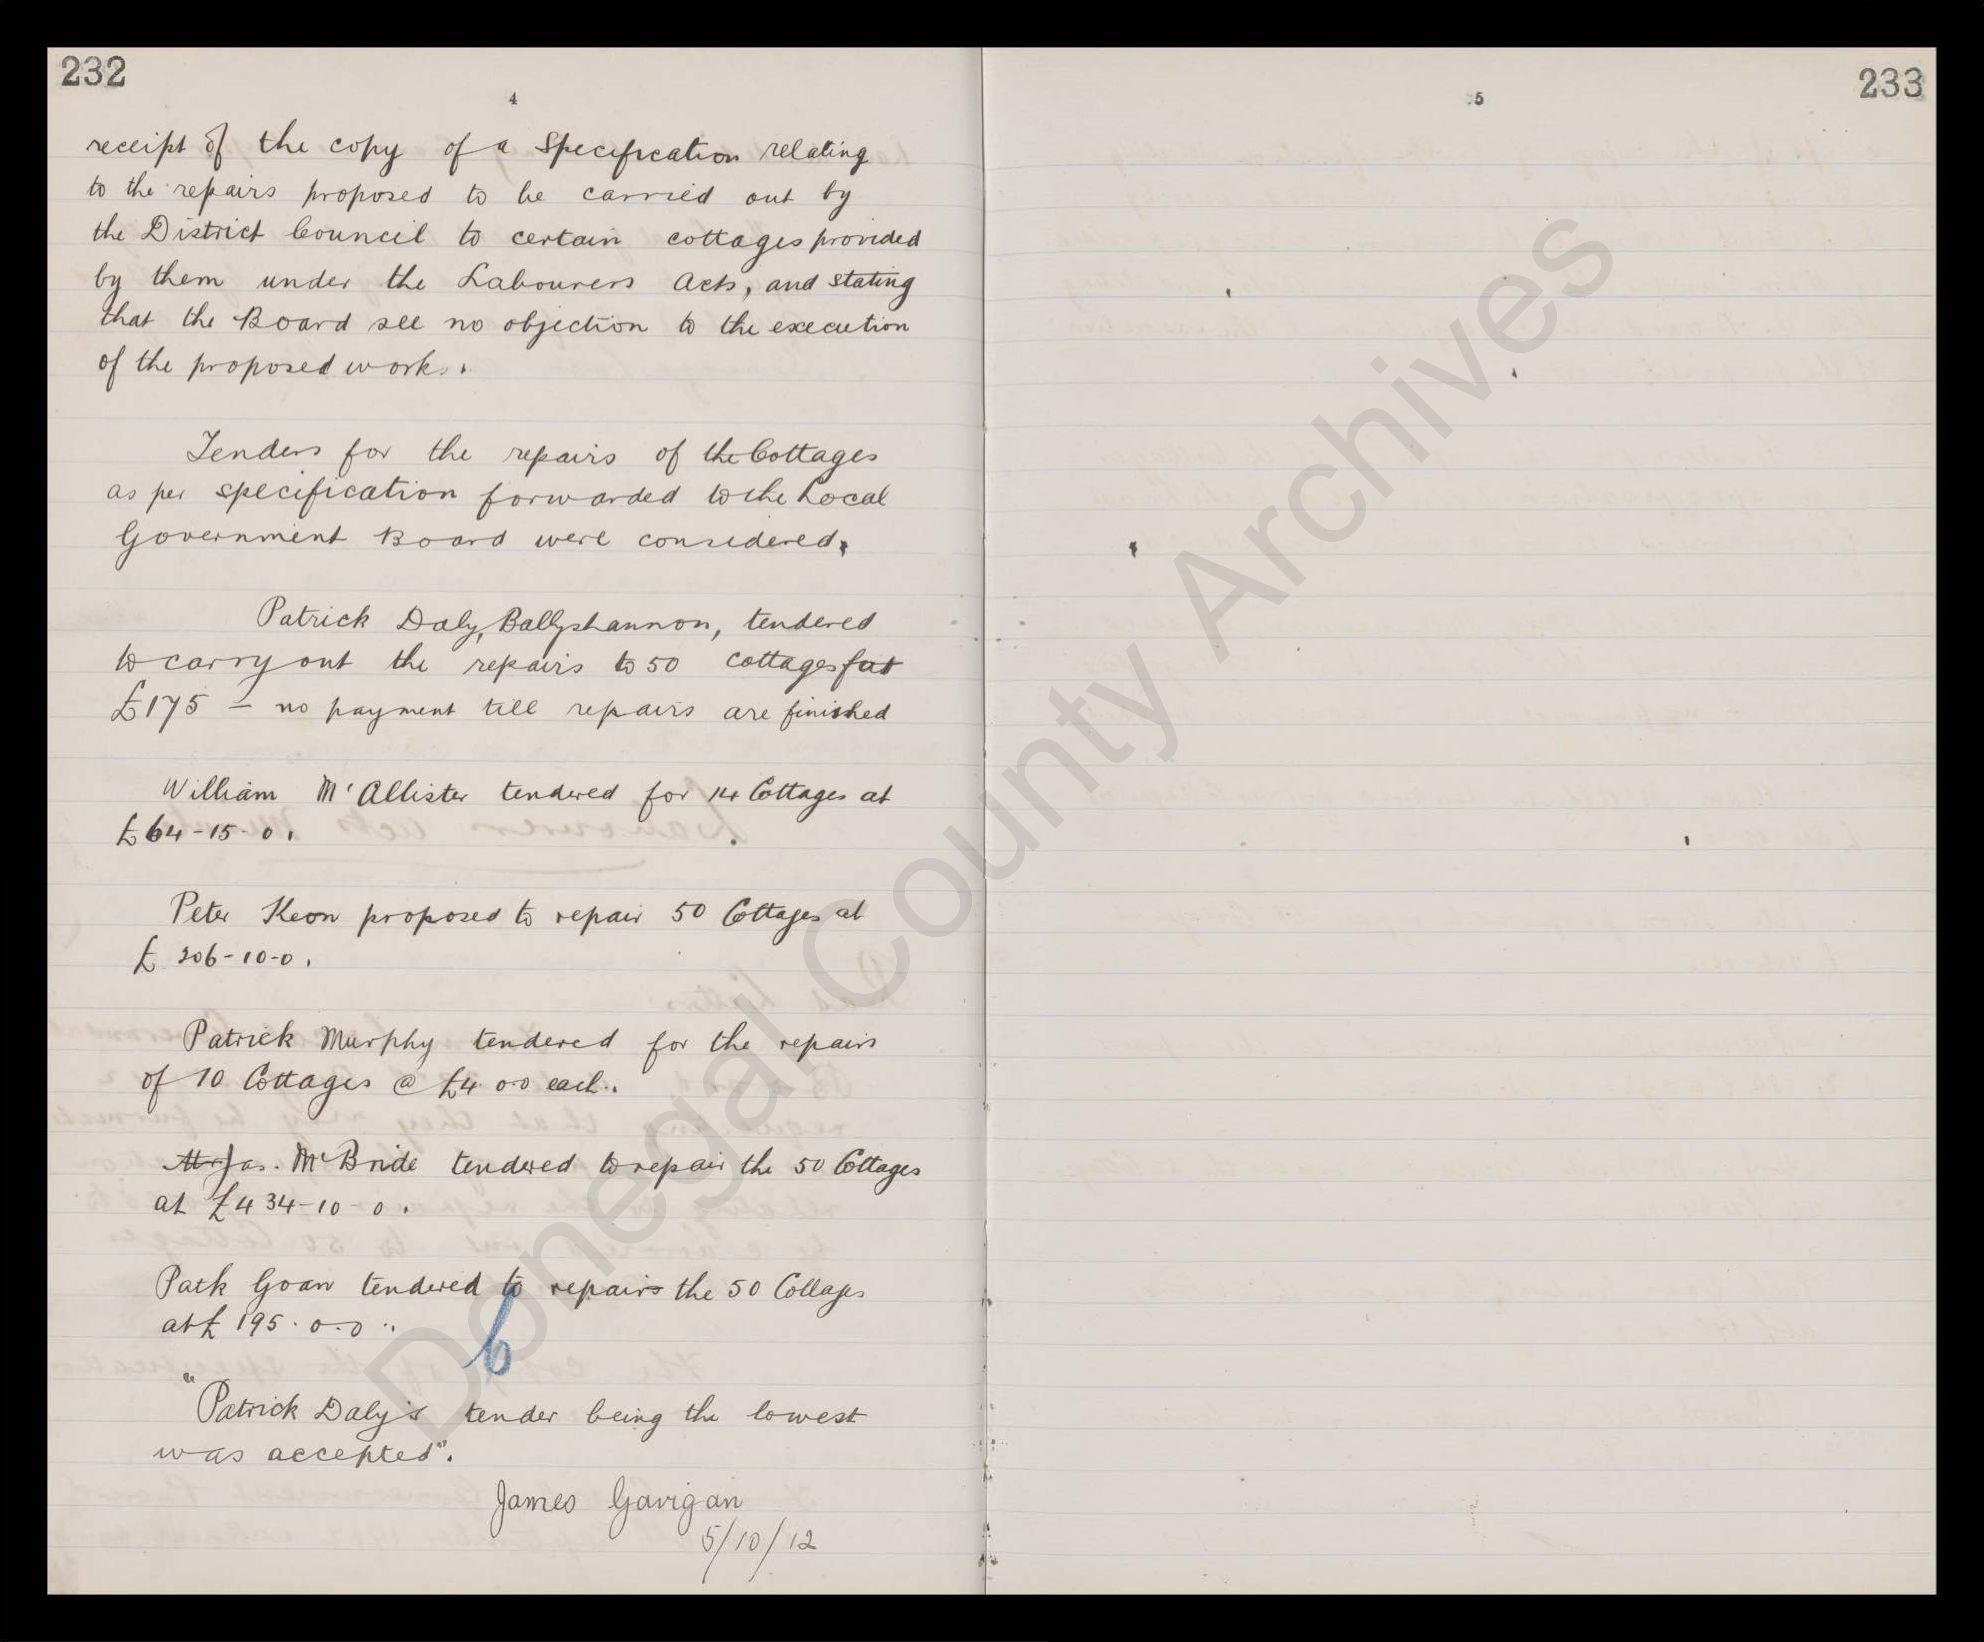 232
4
receipt of the copy of a Specification relating
to the repairs proposed to be carried out by
the District Council to certain cottages provided
by them under the Labourers Acts, and stating
that the Board see no objection to the execution
of the proposed works.
Tenders for the repairs of the Cottages
as per specification forwarded to the Local
Government Board were considered.
Patrick Daly, Ballyshannon, tendered
to carry out the repairs to 50 cottages at
£175 – no payment till repairs are finished
William McAllister tendered for 14 Cottages at
£64-15-0.
Peter Keon proposed to repair 50 Cottages at
£206-10-0.
Patrick Murphy tendered for the repairs
of 10 Cottages @ £4 0-0 each.
Mr Jas. McBride tendered to repair the 50 Cottages
at £434-10-0.
Patk Goan tendered to repairs the 50 Cottages
at £195.0.0.
"Patrick Daly's tender being the lowest
was accepted".
James Gavigan
5/10/12
233
5
Donegal County Archives